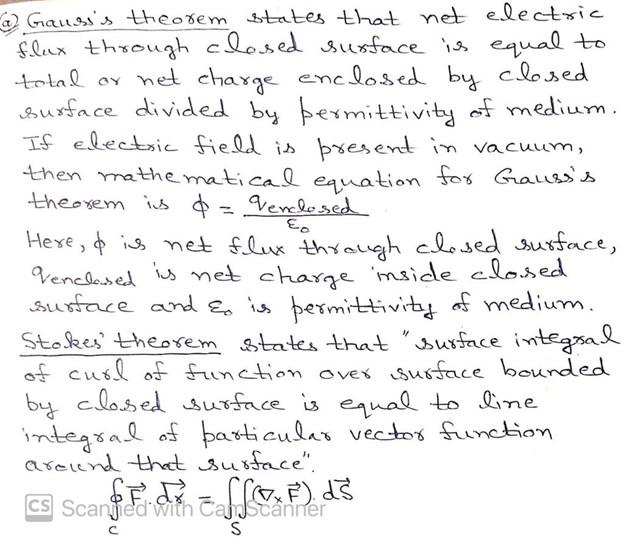 @ Gauss's theorem states that net electric
flux through closed surface is equal to
total or net charge enclosed by closed
surface divided by permittivity of medium.
If electric field is present in vacuum,
then mathematical equation for Gauss's
theorem is ϕ = qenclosed / ε₀
Here, ϕ is net flux through closed surface,
qenclosed is net charge inside closed
surface and ε₀ is permittivity of medium.
Stokes' theorem states that "surface integral
of curl of function over surface bounded
by closed surface is equal to line
integral of particular vector function
around that surface".
∮_C F⃗. dr⃗ = ∬_S (∇ₓ F⃗). dS⃗
CS Scanned with CamScanner